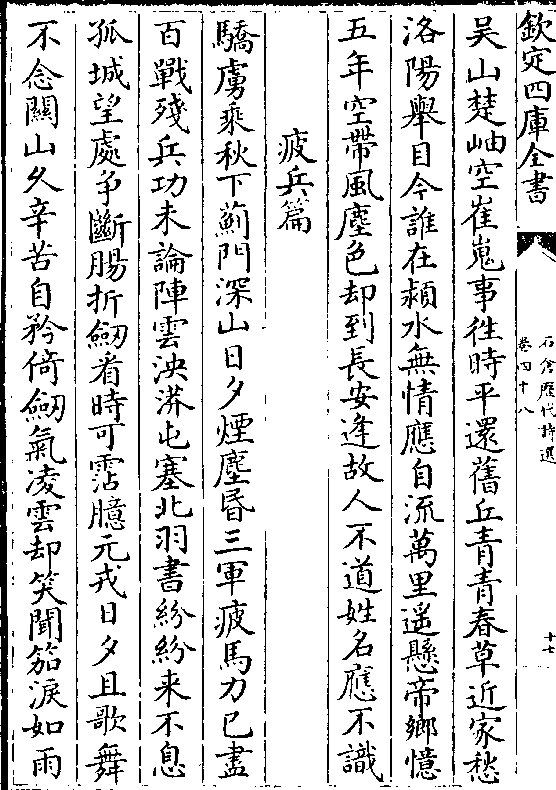 欽定四庫全書
石倉歷代詩選
卷四十八
十七
吴山楚岫空崔嵬事往時平還舊丘青青春草近家愁
洛陽舉目今誰在潁水無情應自流萬里遥懸帝鄉憶
五年空帶風塵色却到長安逢故人不道姓名應不識
疲兵篇
驕虜乘秋下薊門深山日夕煙塵昏三軍疲馬力已盡
百戰殘兵功未論陣雲泱漭屯塞北羽書紛紛来不息
孤城望處争斷腸折劒看時可霑臆元戎日夕且歌舞
不念關山久辛苦自矜倚劒氣凌雲却笑聞笳淚如雨